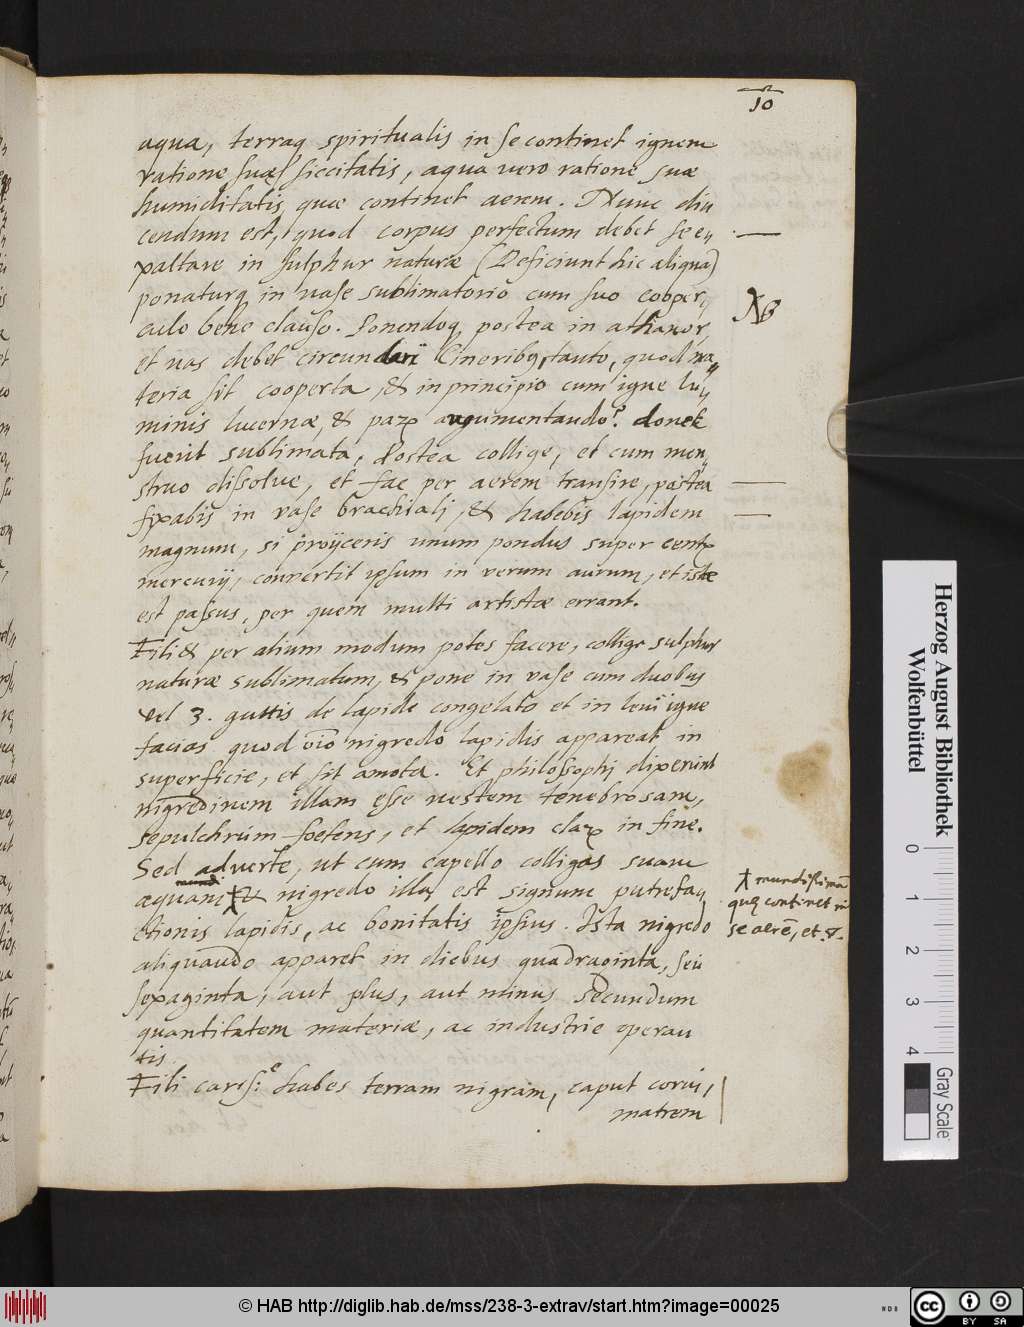 10
aqua, terraq spiritualis in se continet ignem
ratione suæ siccitatis, aqua vero ratione suæ
humiditatis quæ continet aerem. Nunc diu
cendum est, quod corpus perfectum debet se e,,
xaltare in sulphur naturæ (Deficiunt hic aliqua)
ponaturq in vase sublimatorio cum suo cooper,,
NB
culo bene clauso. Ponendoq postea in athanor,
et vas debet circundari Cineribq, tanto, quod ma,,
teria sit cooperta, & in principio cum igne lu,,
minis lucernæ, & augumentando donec
fuerit sublimata, Postea collige, et cum men,,
struo dissolue, et fac per aerem transire, postea
fixabis in vase brachiali, & habebis lapidem
magnum, si proijceris unum pondus super
mercurij, convertit ipsum in verum aurum, et iste
est passus, per quem multi artistæ errant.
Fili & per alium modum potes facere, collige sulphur
naturæ sublimatum, & pone in vase cum duobus
vel 3. guttis de lapide congelato et in leui igne
facias quod oīo nigredo lapidis appareat in
superficie, et sit amota. Et philosophi dixerunt
nigredinem illam esse vestem tenebrosam,
sepulchrum foetens, et lapidem in fine.
Sed adverte, ut cum capello colligas suam
aquam & nigredo illa est signum putrefa,,
mundissimā
quæ continet in
se aerē, et
ctionis lapidis, ac bonitatis ipsius. Ista nigredo
aliquando apparet in diebus quadraginta, seu
sexaginta, aut plus, aut minus secundum
quantitatem materiæ, ac industrie operan
tis.
Fili cariss:e habes terram nigram, caput corui,
matrem
Herzog August Bibliothek
Wolfenbüttel
0 1 2 3 4
Gray Scale
© HAB http://diglib.hab.de/mss/238-3-extrav/start.htm?image=00025
cc BY SA